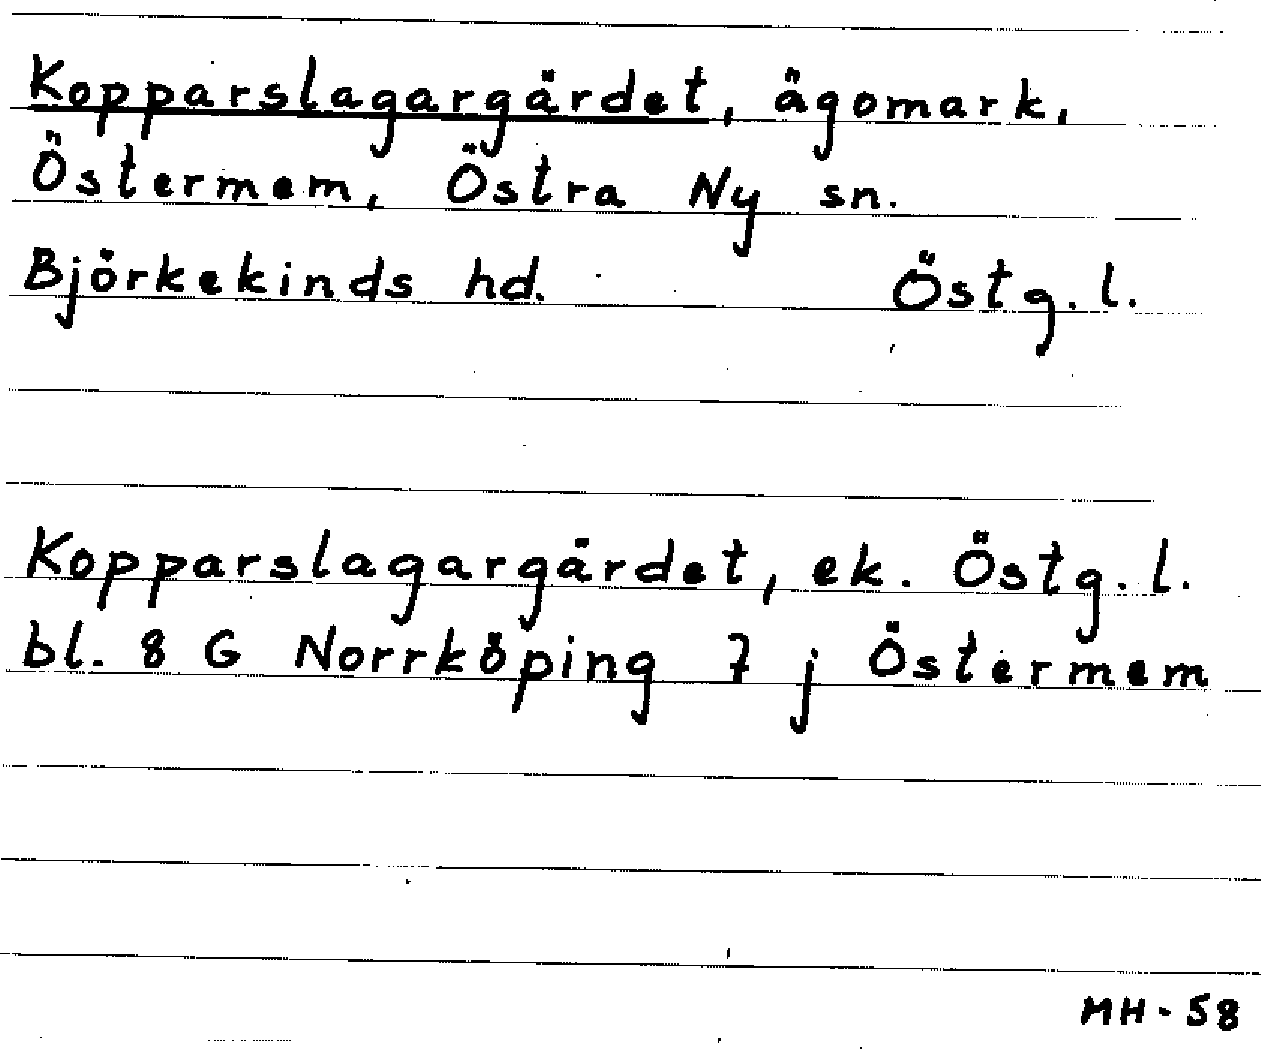 Kopparslagargärdet, ägomark,
Östermem, Östra Ny sn.
Björkekinds hd. Östg. l.
Kopparslagargärdet, ek. Östg. l.
bl. 8 G Norrköping 7 j Östermem
MH-58